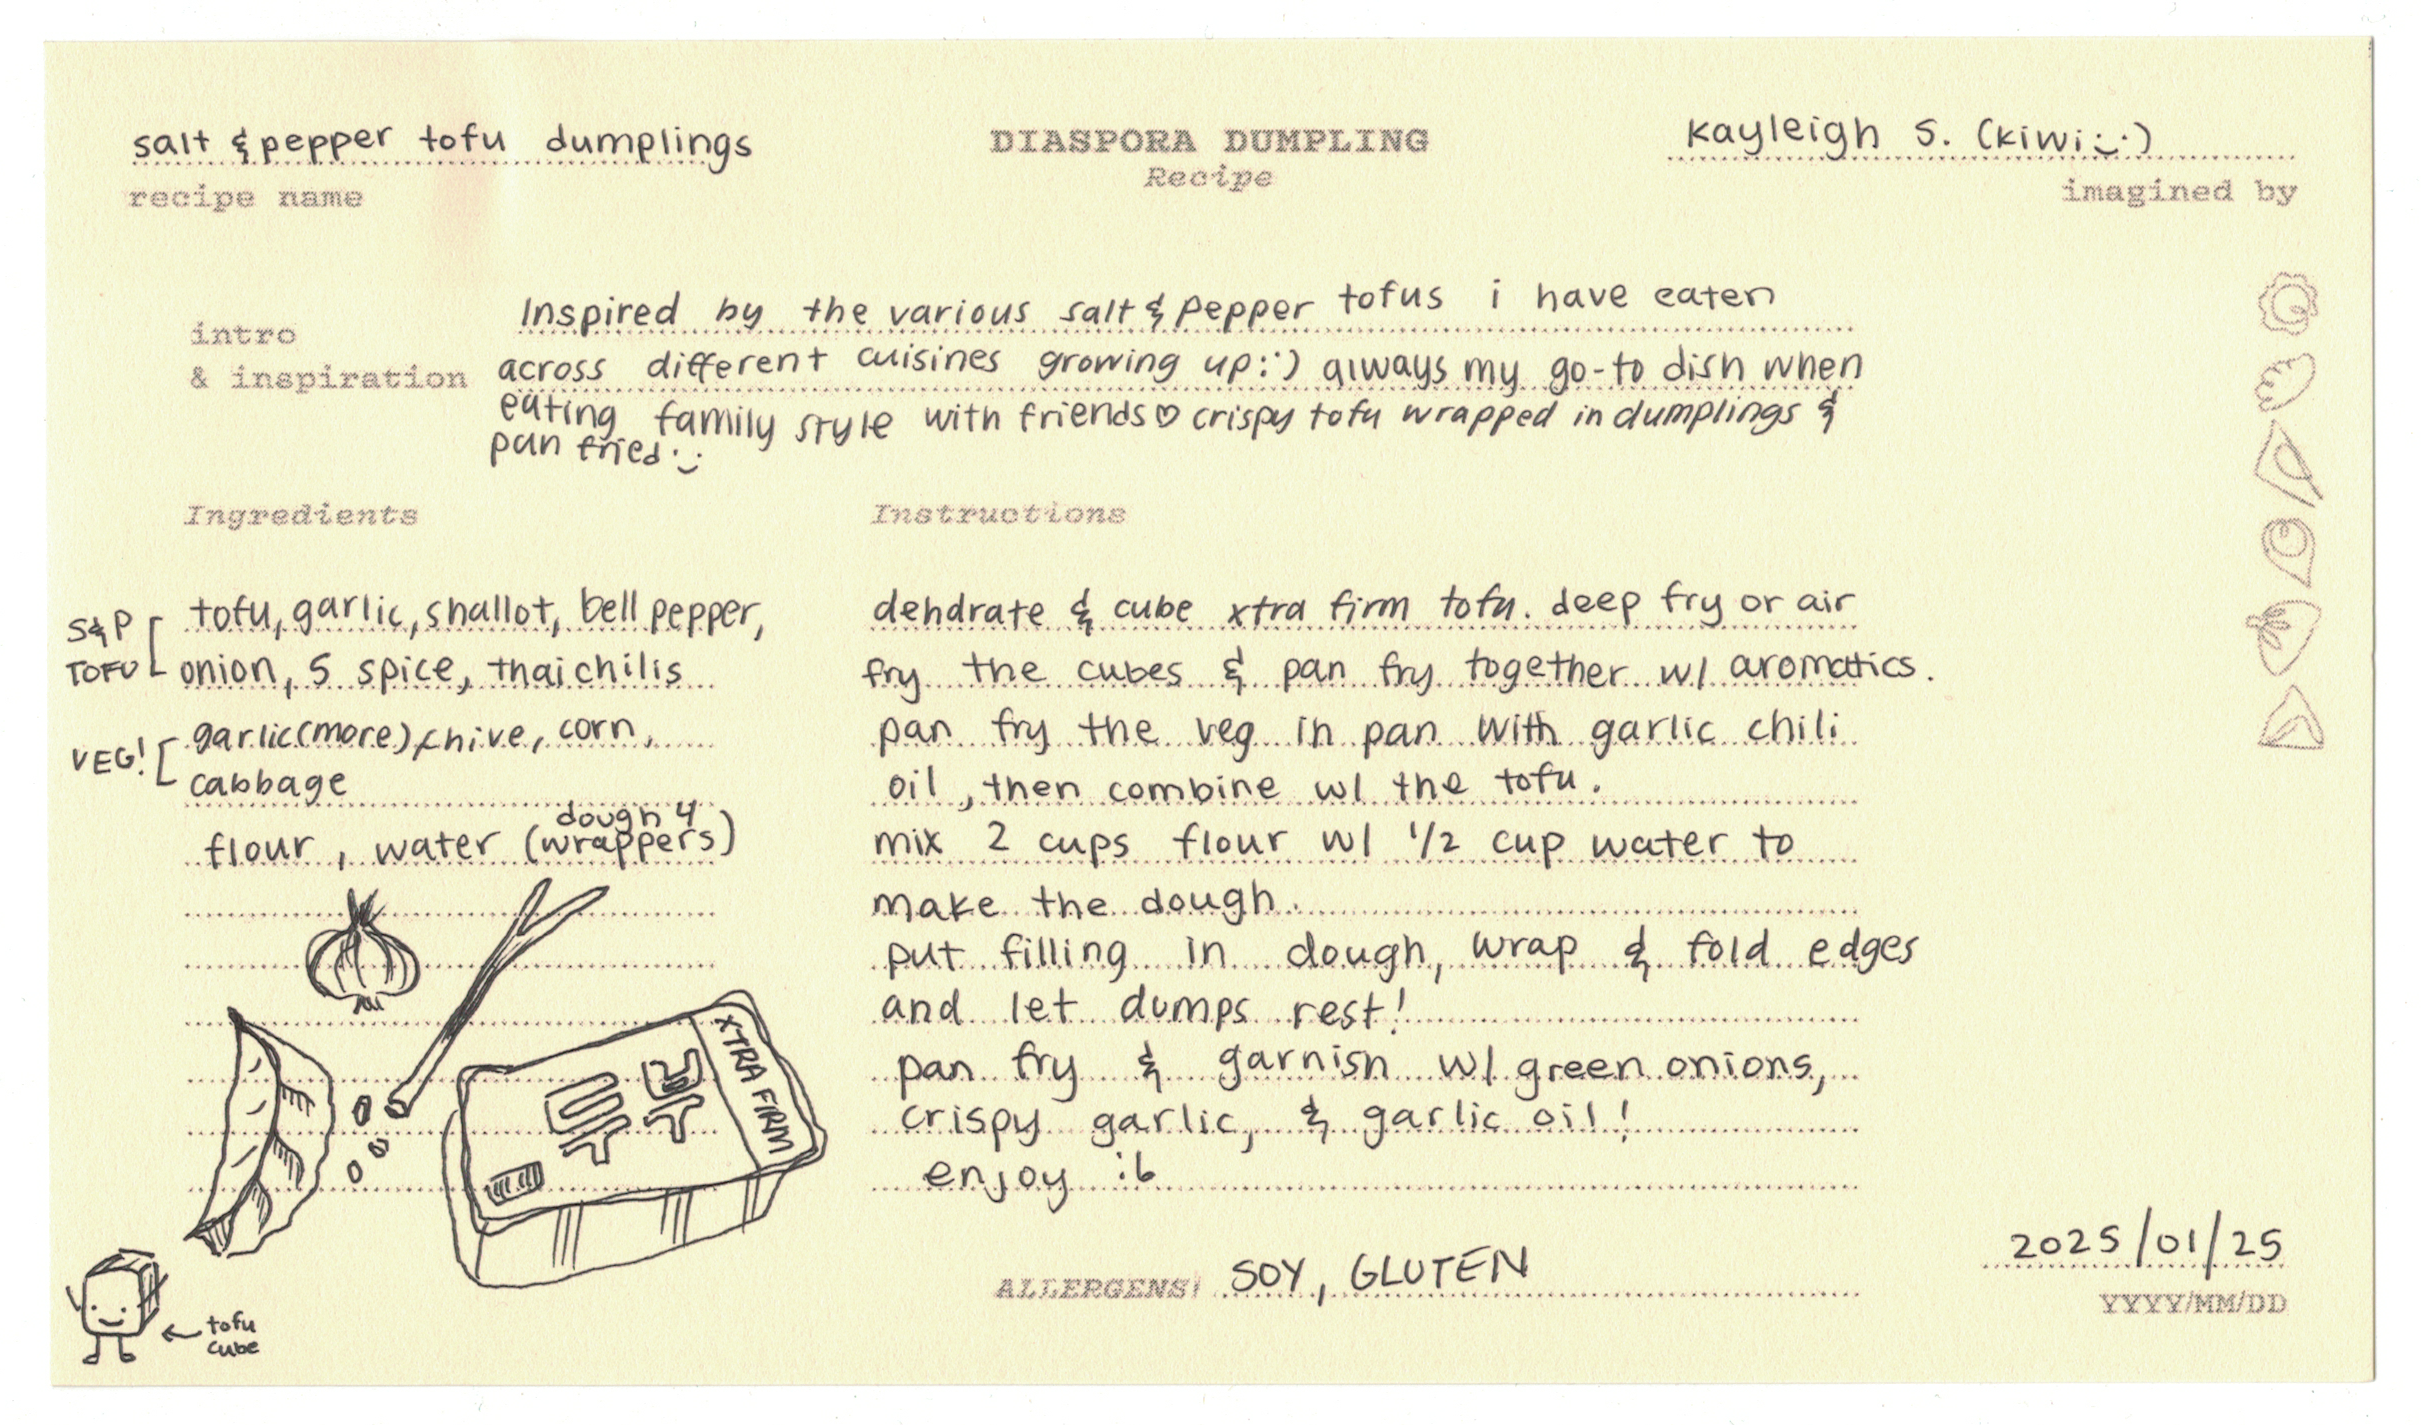 salt & pepper tofu dumplings
recipe name
DIASPORA DUMPLING
Recipe
Kayleigh S. (kiwi :))
imagined by
intro
& inspiration
Inspired by the various salt & pepper tofus i have eaten
across different cuisines growing up :') always my go-to dish when
eating family style with friends ♡ crispy tofu wrapped in dumplings &
pan fried :)
Ingredients
S&P TOFU
tofu, garlic, shallot, bell pepper,
onion, 5 spice, thai chilis
VEG!
garlic (more), chive, corn,
cabbage
flour, water (dough 4 wrappers)
두부
XTRA FIRM
tofu
cube
Instructions
dehdrate & cube xtra firm tofu. deep fry or air
fry the cubes & pan fry together w/ aromatics.
pan fry the veg in pan with garlic chili
oil, then combine w/ the tofu.
mix 2 cups flour w/ 1/2 cup water to
make the dough.
put filling in dough, wrap & fold edges
and let dumps rest!
pan fry & garnish w/ green onions,
crispy garlic, & garlic oil!
enjoy :b
ALLERGENS! SOY, GLUTEN
2025/01/25
YYYY/MM/DD